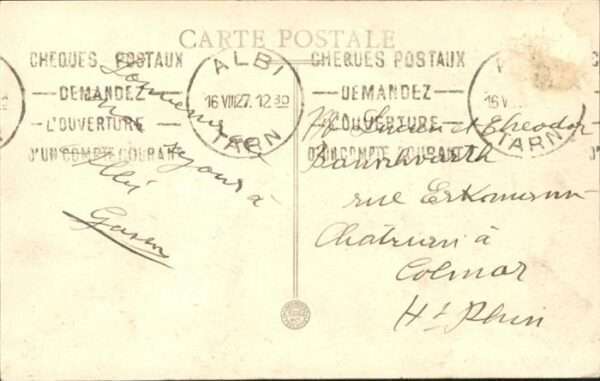 CARTE POSTALE
CHÈQUES POSTAUX
DEMANDEZ
L'OUVERTURE
D'UN COMPTE COURANT
ALBI
16 VIII 27. 12 30
TARN
CHÈQUES POSTAUX
DEMANDEZ
L'OUVERTURE
D'UN COMPTE COURANT
16 V
TARN
séjour à
Albi
Lucien et
rue Erkmann
Chatrian à
Colmar
Ht Rhin